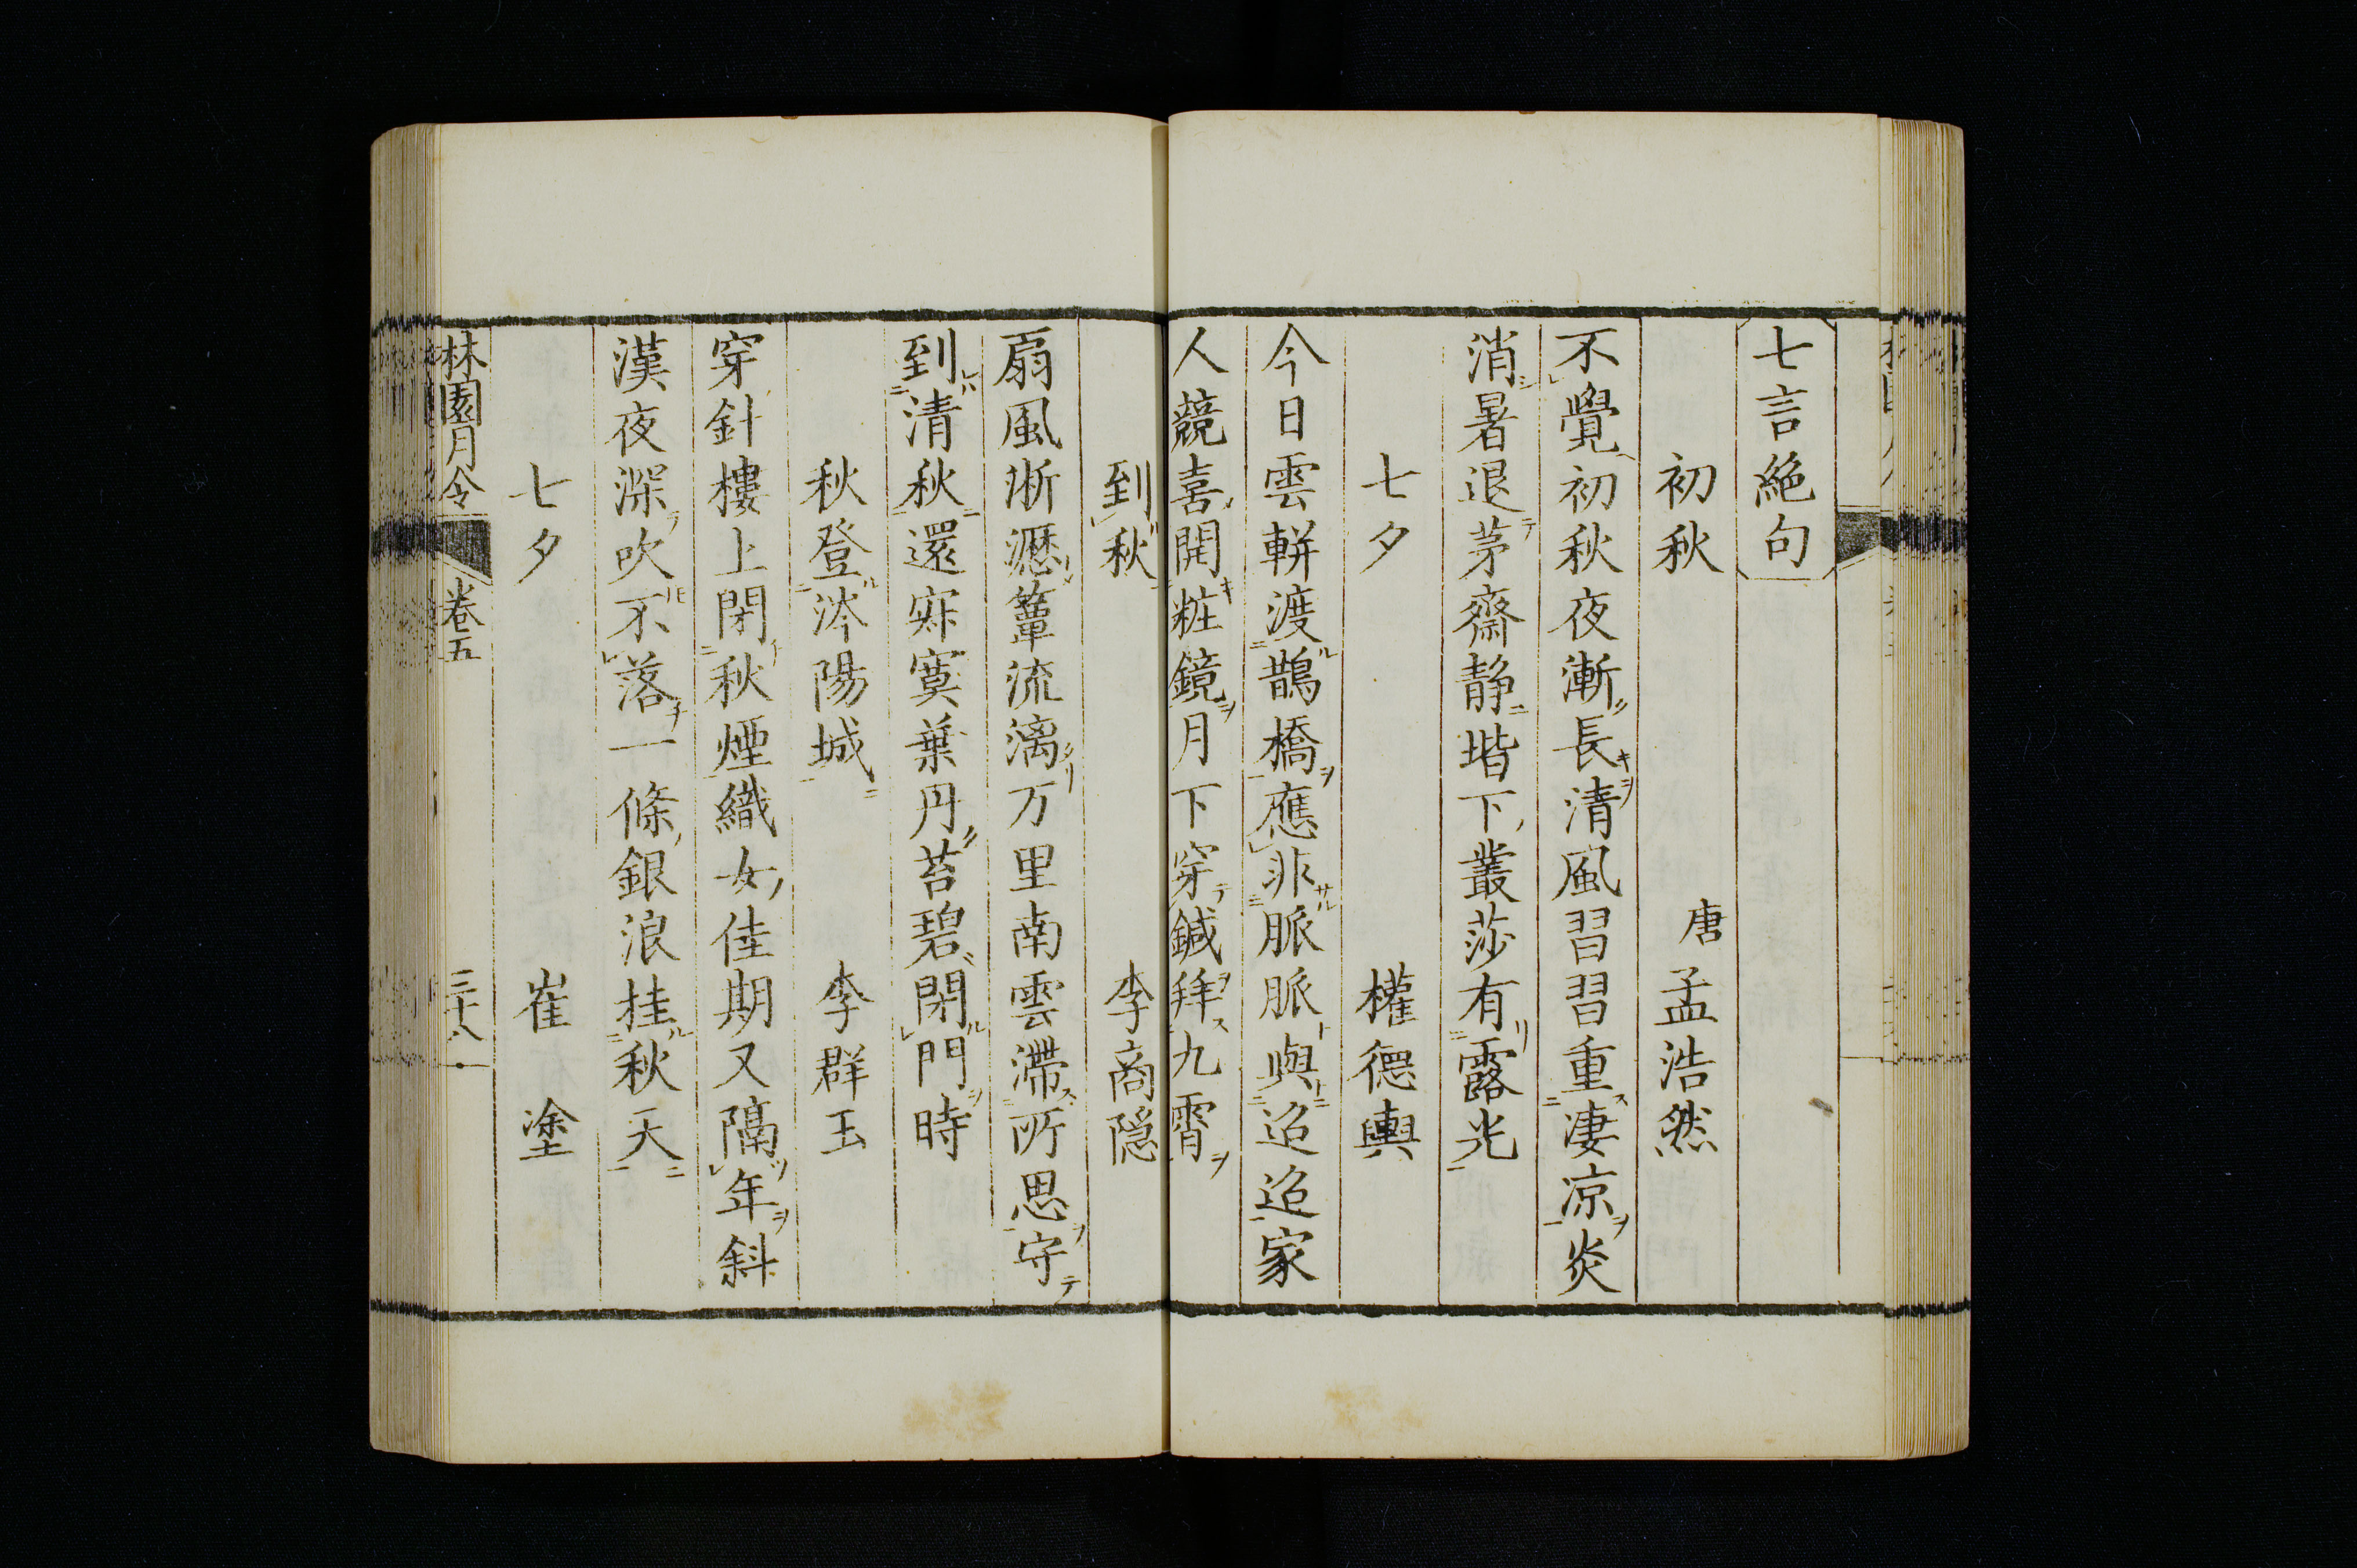 七言絶句
初秋　唐　孟浩然
不覺初秋夜漸長清風習習重凄凉炎
消暑退茅齋静堦下叢莎有露光
七夕　權德輿
今日雲軿渡鵲橋應非脈脈與迢迢家
人競喜開粧鏡月下穿鍼拜九霄
到秋　李商隠
扇風淅瀝簟流漓万里南雲滯所思守
到清秋還寂寞葉丹苔碧閉門時
秋登涔陽城　李群玉
穿針樓上閉秋煙織女佳期又隔年斜
漢夜深吹不落一條銀浪挂秋天
七夕　崔塗
林園月令　卷五　三十八